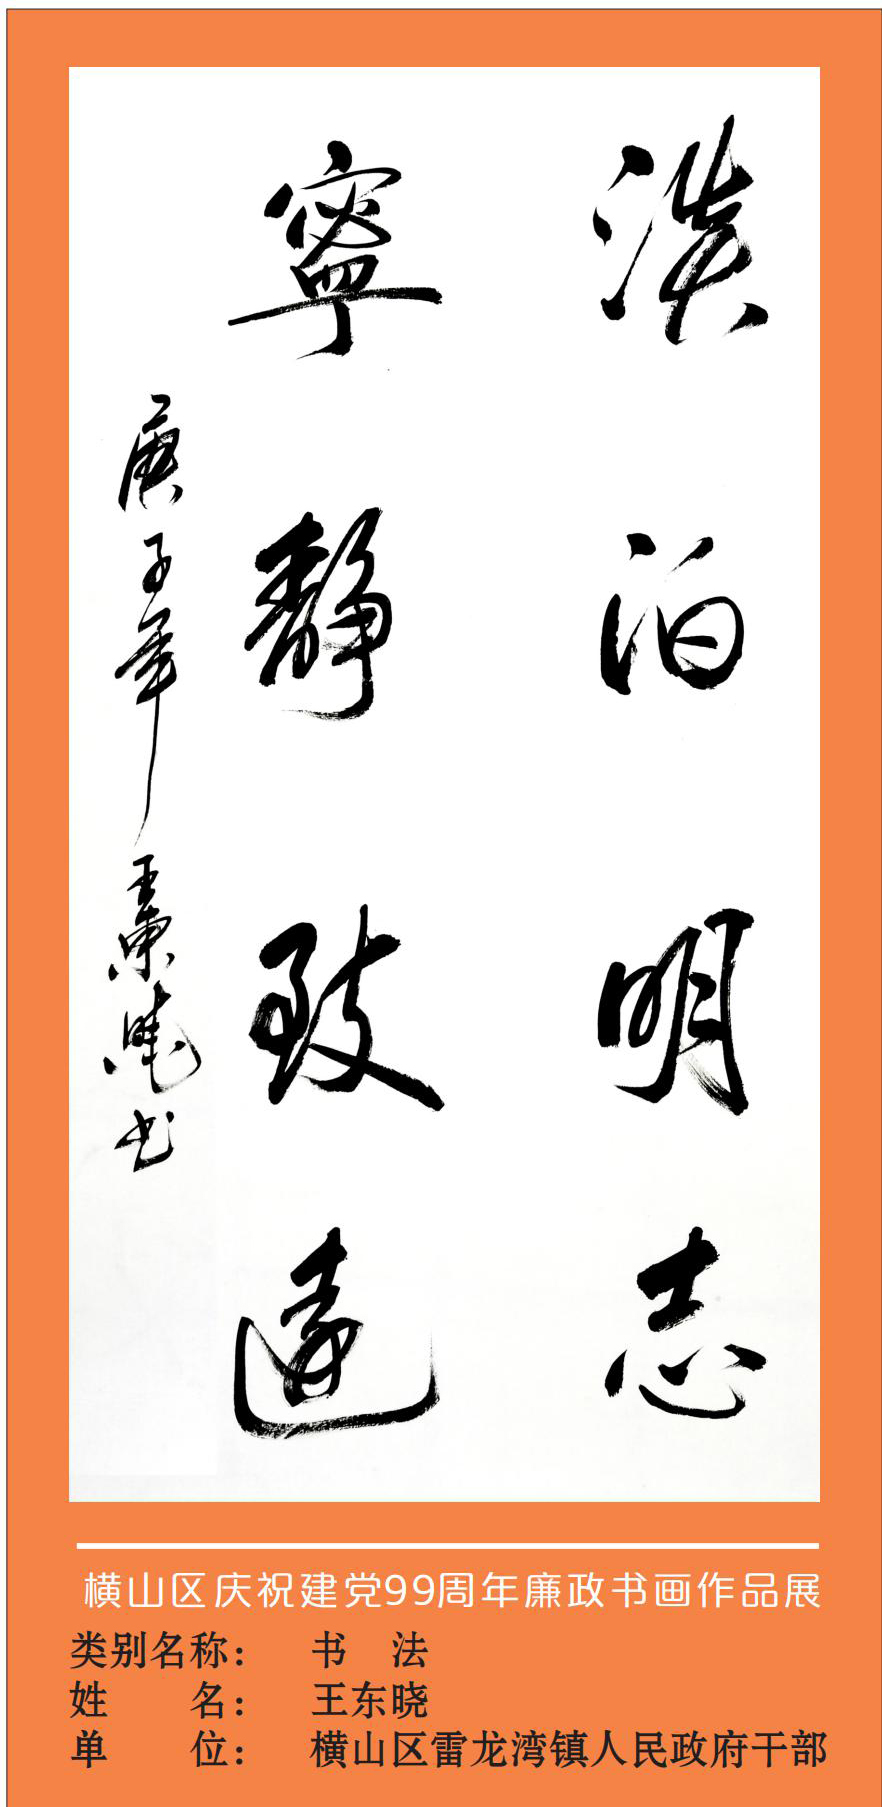 淡泊明志
寧静致遠
庚子年王東曉书
横山区庆祝建党99周年廉政书画作品展
类别名称： 书 法
姓 名： 王东晓
单 位： 横山区雷龙湾镇人民政府干部